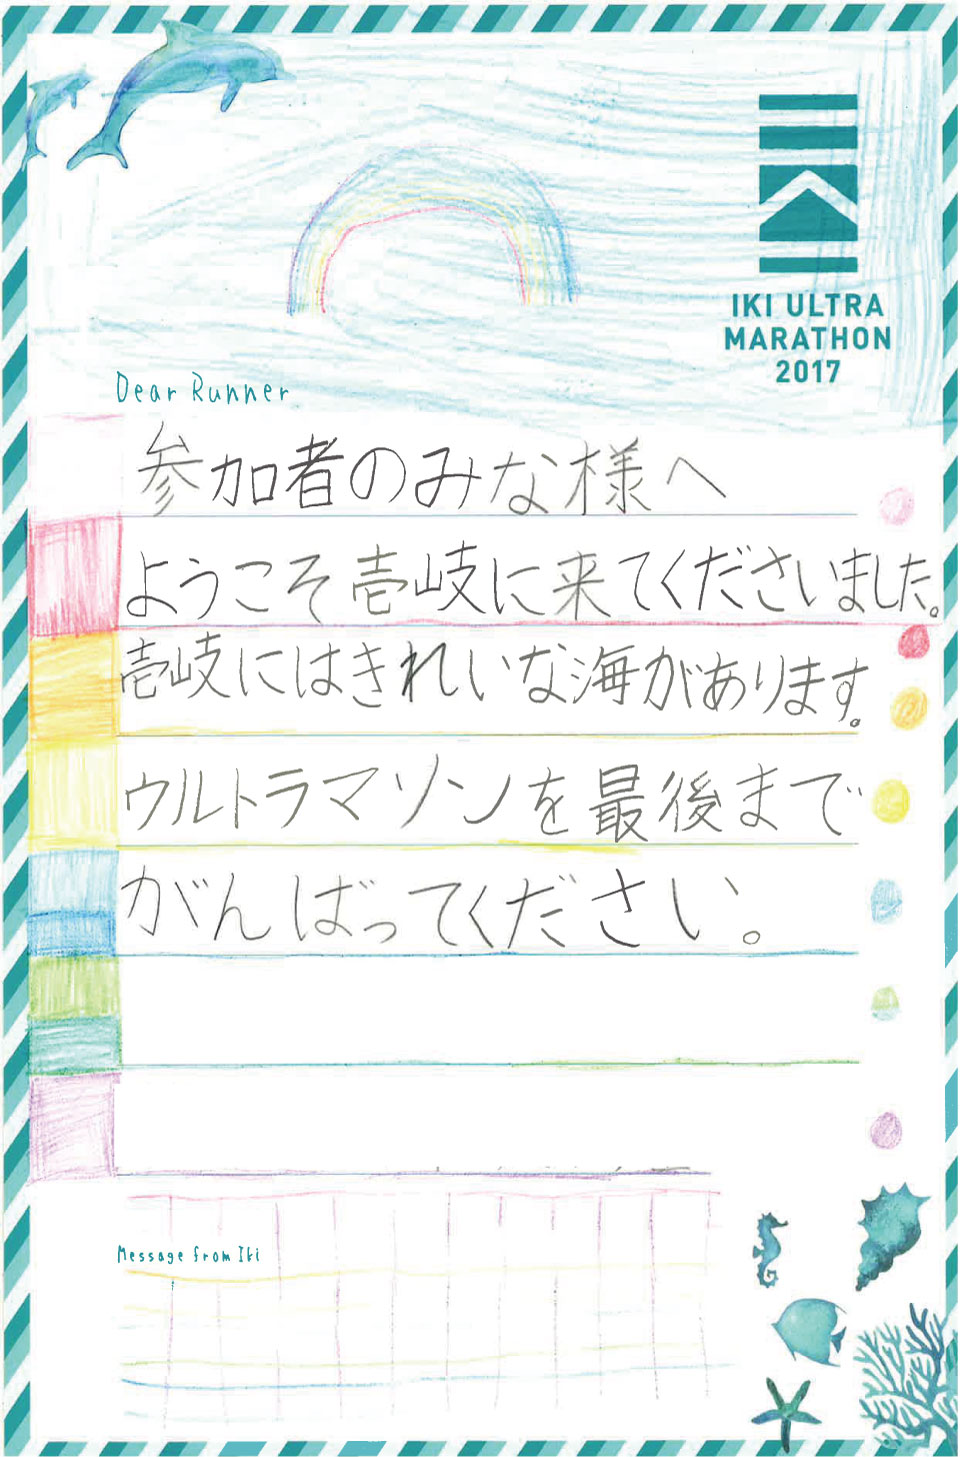 IKI
IKI ULTRA
MARATHON
2017
Dear Runner
参加者のみな様へ
ようこそ壱岐に来てくださいました。
壱岐にはきれいな海があります。
ウルトラマソンを最後まで
がんばってください。
Message from Iki